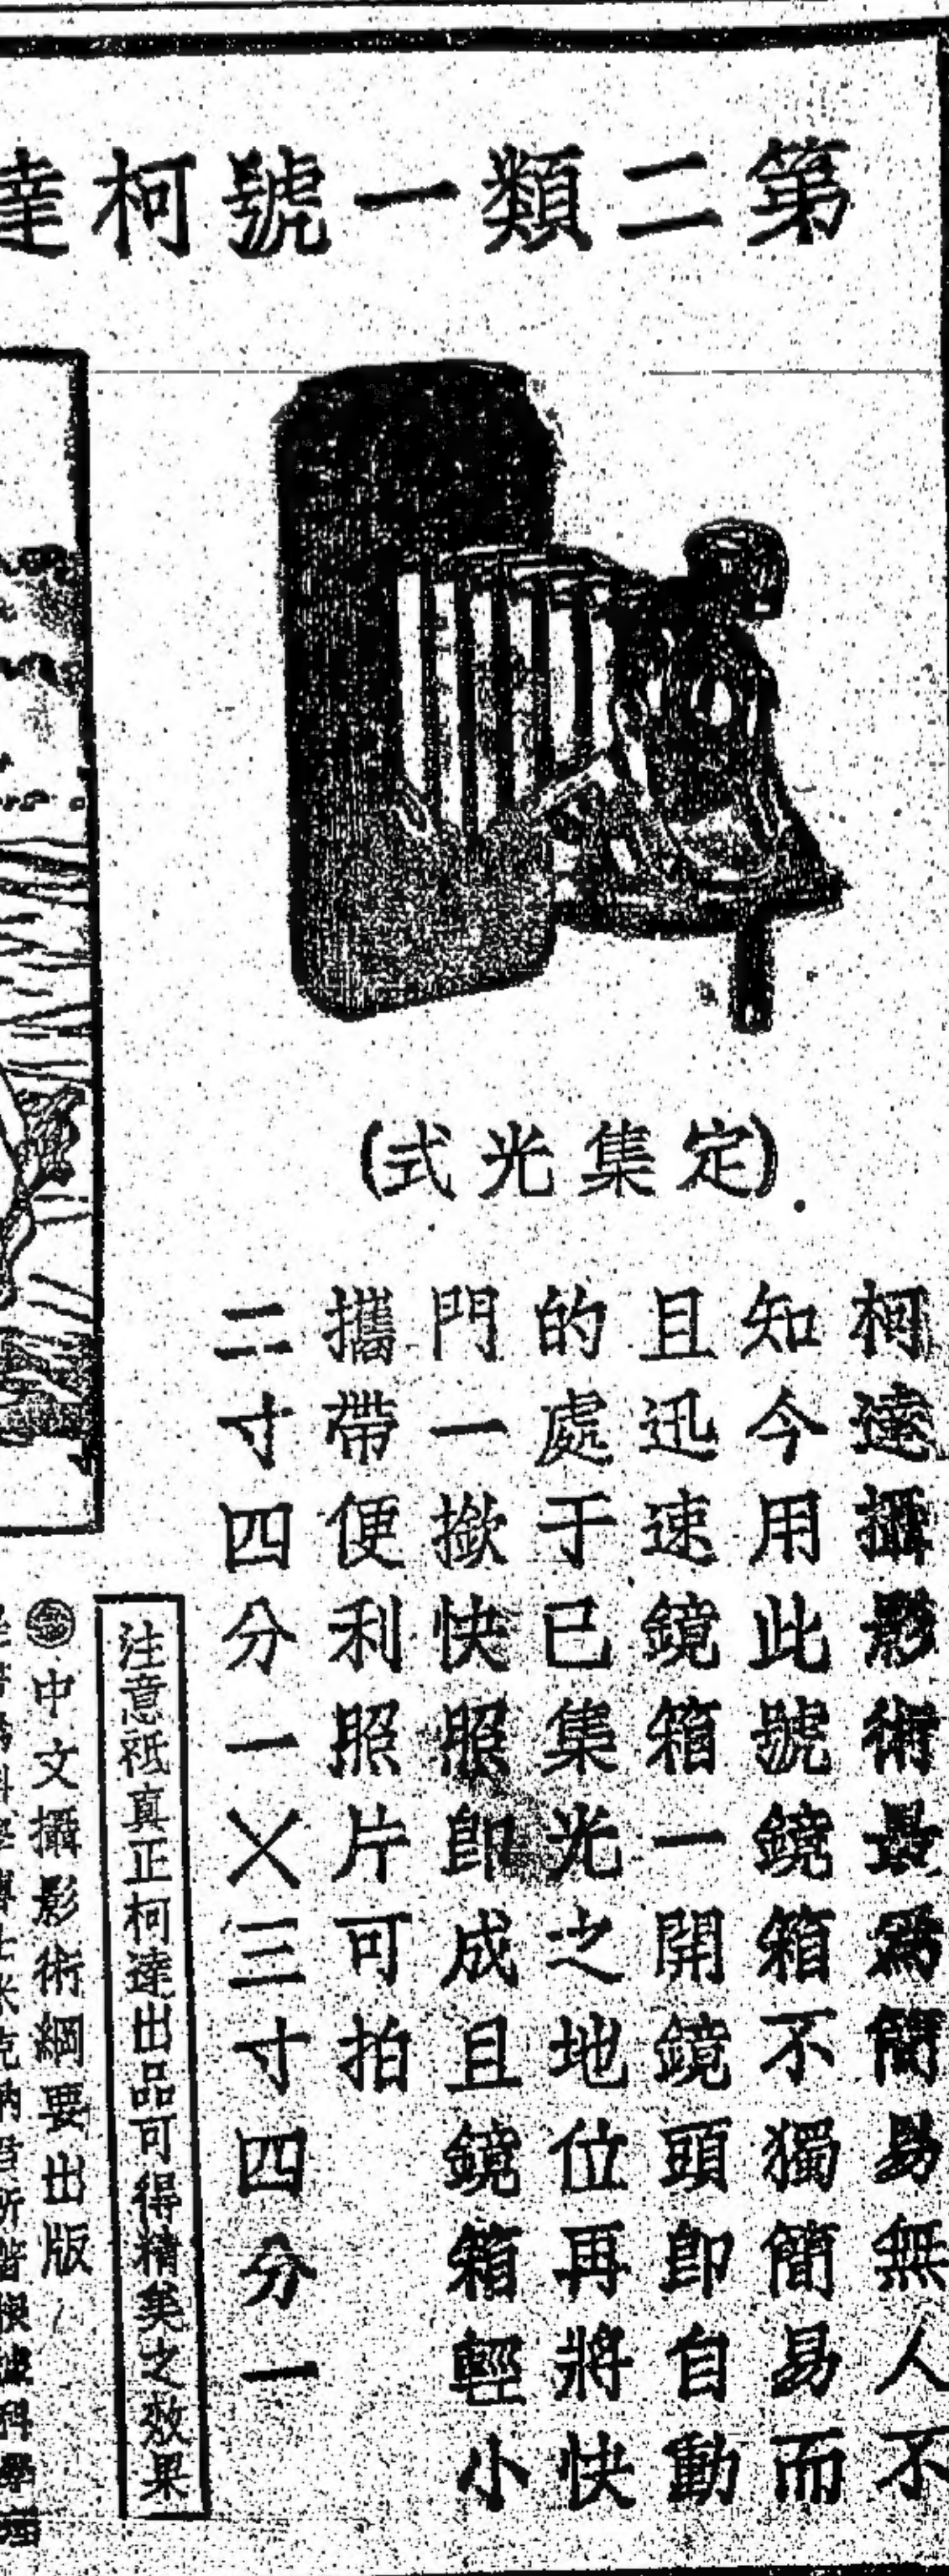 第二類一號柯達
(定集光式)
柯達攝影術最為簡易無人不
知今用此號鏡箱不獨簡易而
且迅速鏡箱一開鏡頭即自動
的處于已集光之地位再將快
門一撳快照即成且鏡箱輕小
攜帶便利照片可拍
二寸四分一×三寸四分一
注意祇真正柯達出品可得精美之效果
中文攝影術綱要出版